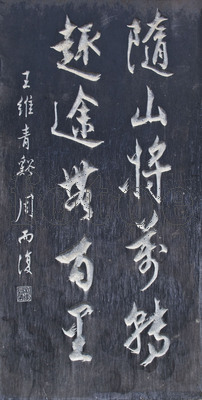 随山将萬轉
趣途無百里
王維青谿 周而復